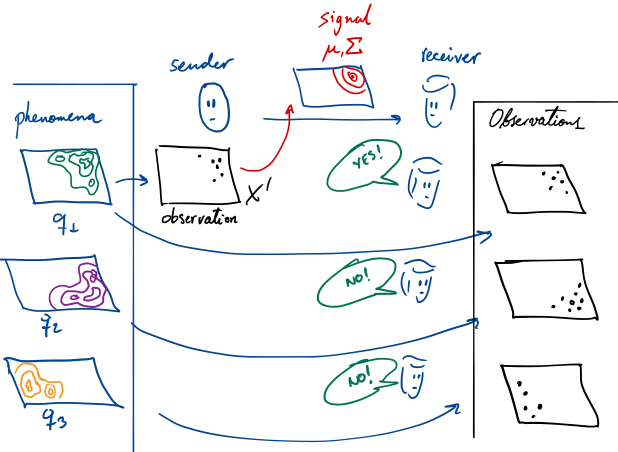 signal
μ, Σ
sender
receiver
phenomena
Observations
YES!
X'
observation
q1
NO!
q2
NO!
q3